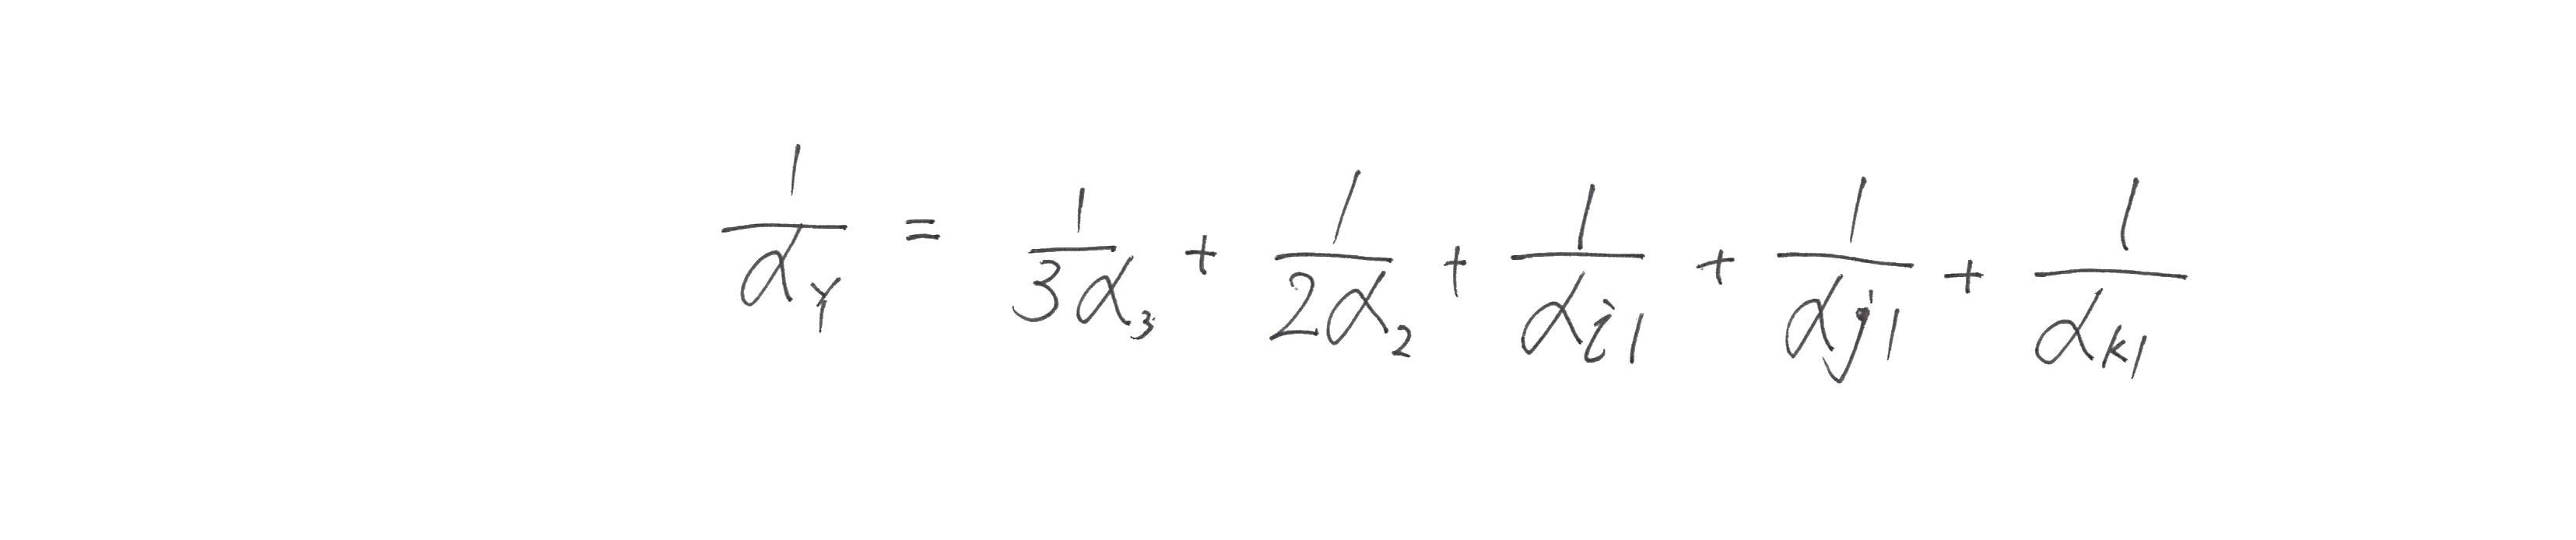 \frac{1}{\alpha_Y} = \frac{1}{3\alpha_3} + \frac{1}{2\alpha_2} + \frac{1}{\alpha_{i1}} + \frac{1}{\alpha_{j1}} + \frac{1}{\alpha_{k1}}